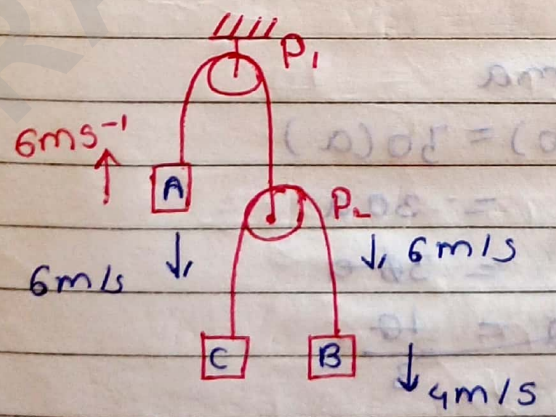 P₁
6ms⁻¹
A
P₂
6m/s
6m/s
C
B
4m/s